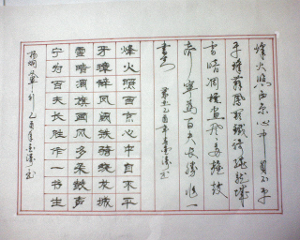 烽火照西京心中自不平
牙璋辞凤阙铁骑绕龙城
雪暗凋旗画风多杂鼓
声宁为百夫长胜作一
书生
烽火照西京心中自不平
牙璋辞凤阙铁骑绕龙城
雪暗凋旗画风多杂鼓声
宁为百夫长胜作一书生